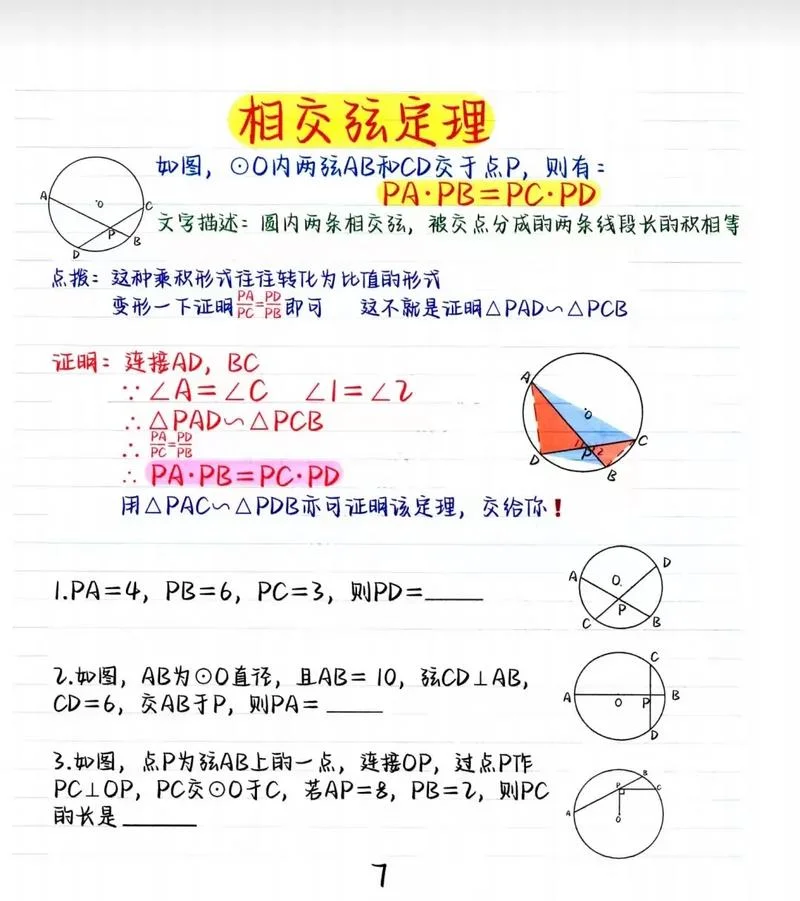 相交弦定理
如图，⊙O内两弦AB和CD交于点P，则有：
PA·PB=PC·PD
文字描述：圆内两条相交弦，被交点分成的两条线段长的积相等
A O C P B D
点拨：这种乘积形式往往转化为比值的形式
变形一下证明PA/PC=PD/PB即可 这不就是证明△PAD∽△PCB
证明：连接AD，BC
∵∠A=∠C ∠1=∠2
∴△PAD∽△PCB
∴PA/PC=PD/PB
∴PA·PB=PC·PD
用△PAC∽△PDB亦可证明该定理，交给你！
A O C D 1 P 2 B
1.PA=4，PB=6，PC=3，则PD=____
A O. D P C B
2.如图，AB为⊙O直径，且AB=10，弦CD⊥AB，
CD=6，交AB于P，则PA=____
C A O P B D
3.如图，点P为弦AB上的一点，连接OP，过点P作
PC⊥OP，PC交⊙O于C，若AP=8，PB=2，则PC
的长是____
B P C A O
7